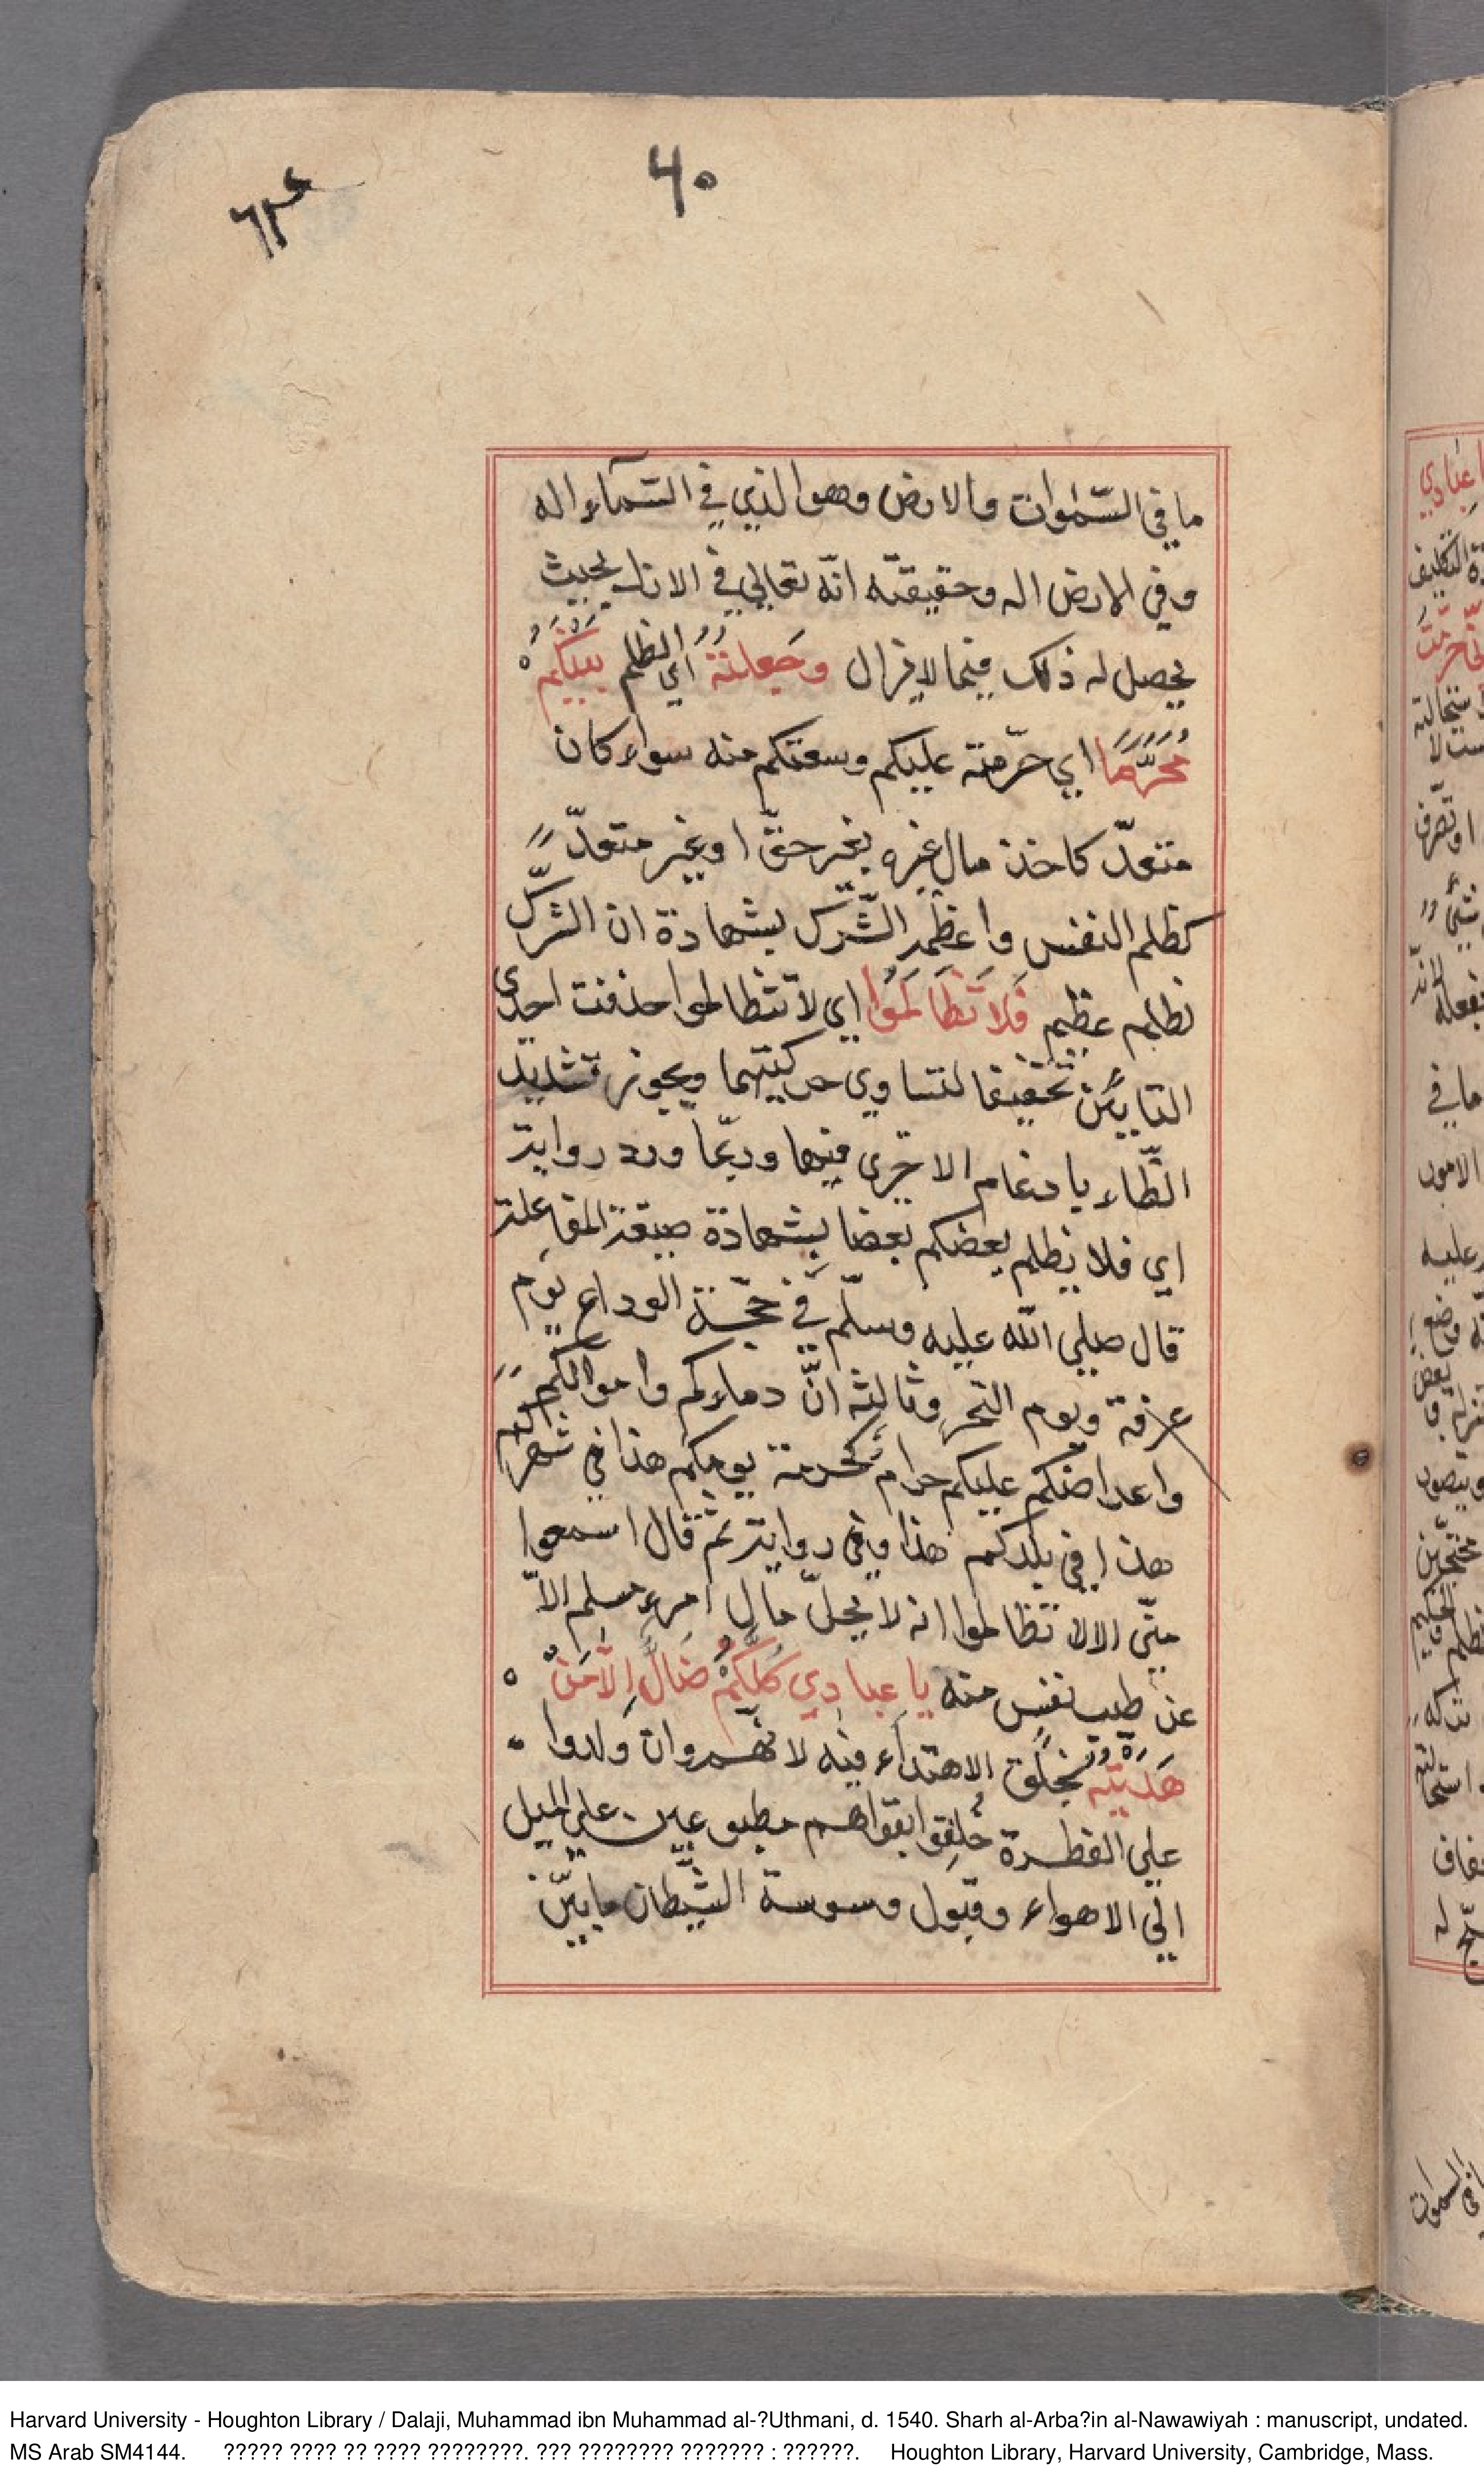 ٦٣
٦٠
ما في السّمٰوات والارض وهو الذي في السّمآء اله
وفي الارض اله وحقيقته انّه تعالي في الازل بحيث
يحصل له ذلك فيما لايزال وجعلته اي الظلم بينكم
محرّما اي حرّمته عليكم ومنعتكم منه سواء كان
متعدّ كاخذ مال غيره بغير حقّ او غير متعدّ
كظلم النفس واعظمه الشّرك بشهادة ان الشرك
لظلم عظيم فلا تظالموا اي لا تتظالموا حذفت احدى
التايين تخفيفا لتساوي حركتيهما ويجوز تشديد
الظّاء بادغام الاخرى فيها وربّما ورد رواية
اي فلا يظلم بعضكم بعضا بشهادة صيغة المفاعلة
قال صلي الله عليه وسلّم في حجّة الوداع يوم
عرفة ويوم النحر وثالثه انّ دماءكم واموالكم
واعراضكم عليكم حرام كحرمة يومكم هذا في شهركم
هذا في بلدكم هذا وفي رواية ثم قال اسمعوا
منّي الا لا تظالموا انه لا يحلّ مال امرء مسلم الّا
عن طيب نفس منه يا عبادي كلّكم ضالّ الّا من
هديته بخلق الاهتداء فيه لانهم وان ولدوا
علي الفطرة خلقوا مطبوعين علي الميل
الي الاهواء وقبول وسوسة الشّيطان ما بين
عبادي
ما في
الامور
عليه
ما في السموات
Harvard University - Houghton Library / Dalaji, Muhammad ibn Muhammad al-?Uthmani, d. 1540. Sharh al-Arba?in al-Nawawiyah : manuscript, undated.
MS Arab SM4144. ????? ???? ?? ???? ????????. ??? ???????? ??????? : ??????. Houghton Library, Harvard University, Cambridge, Mass.